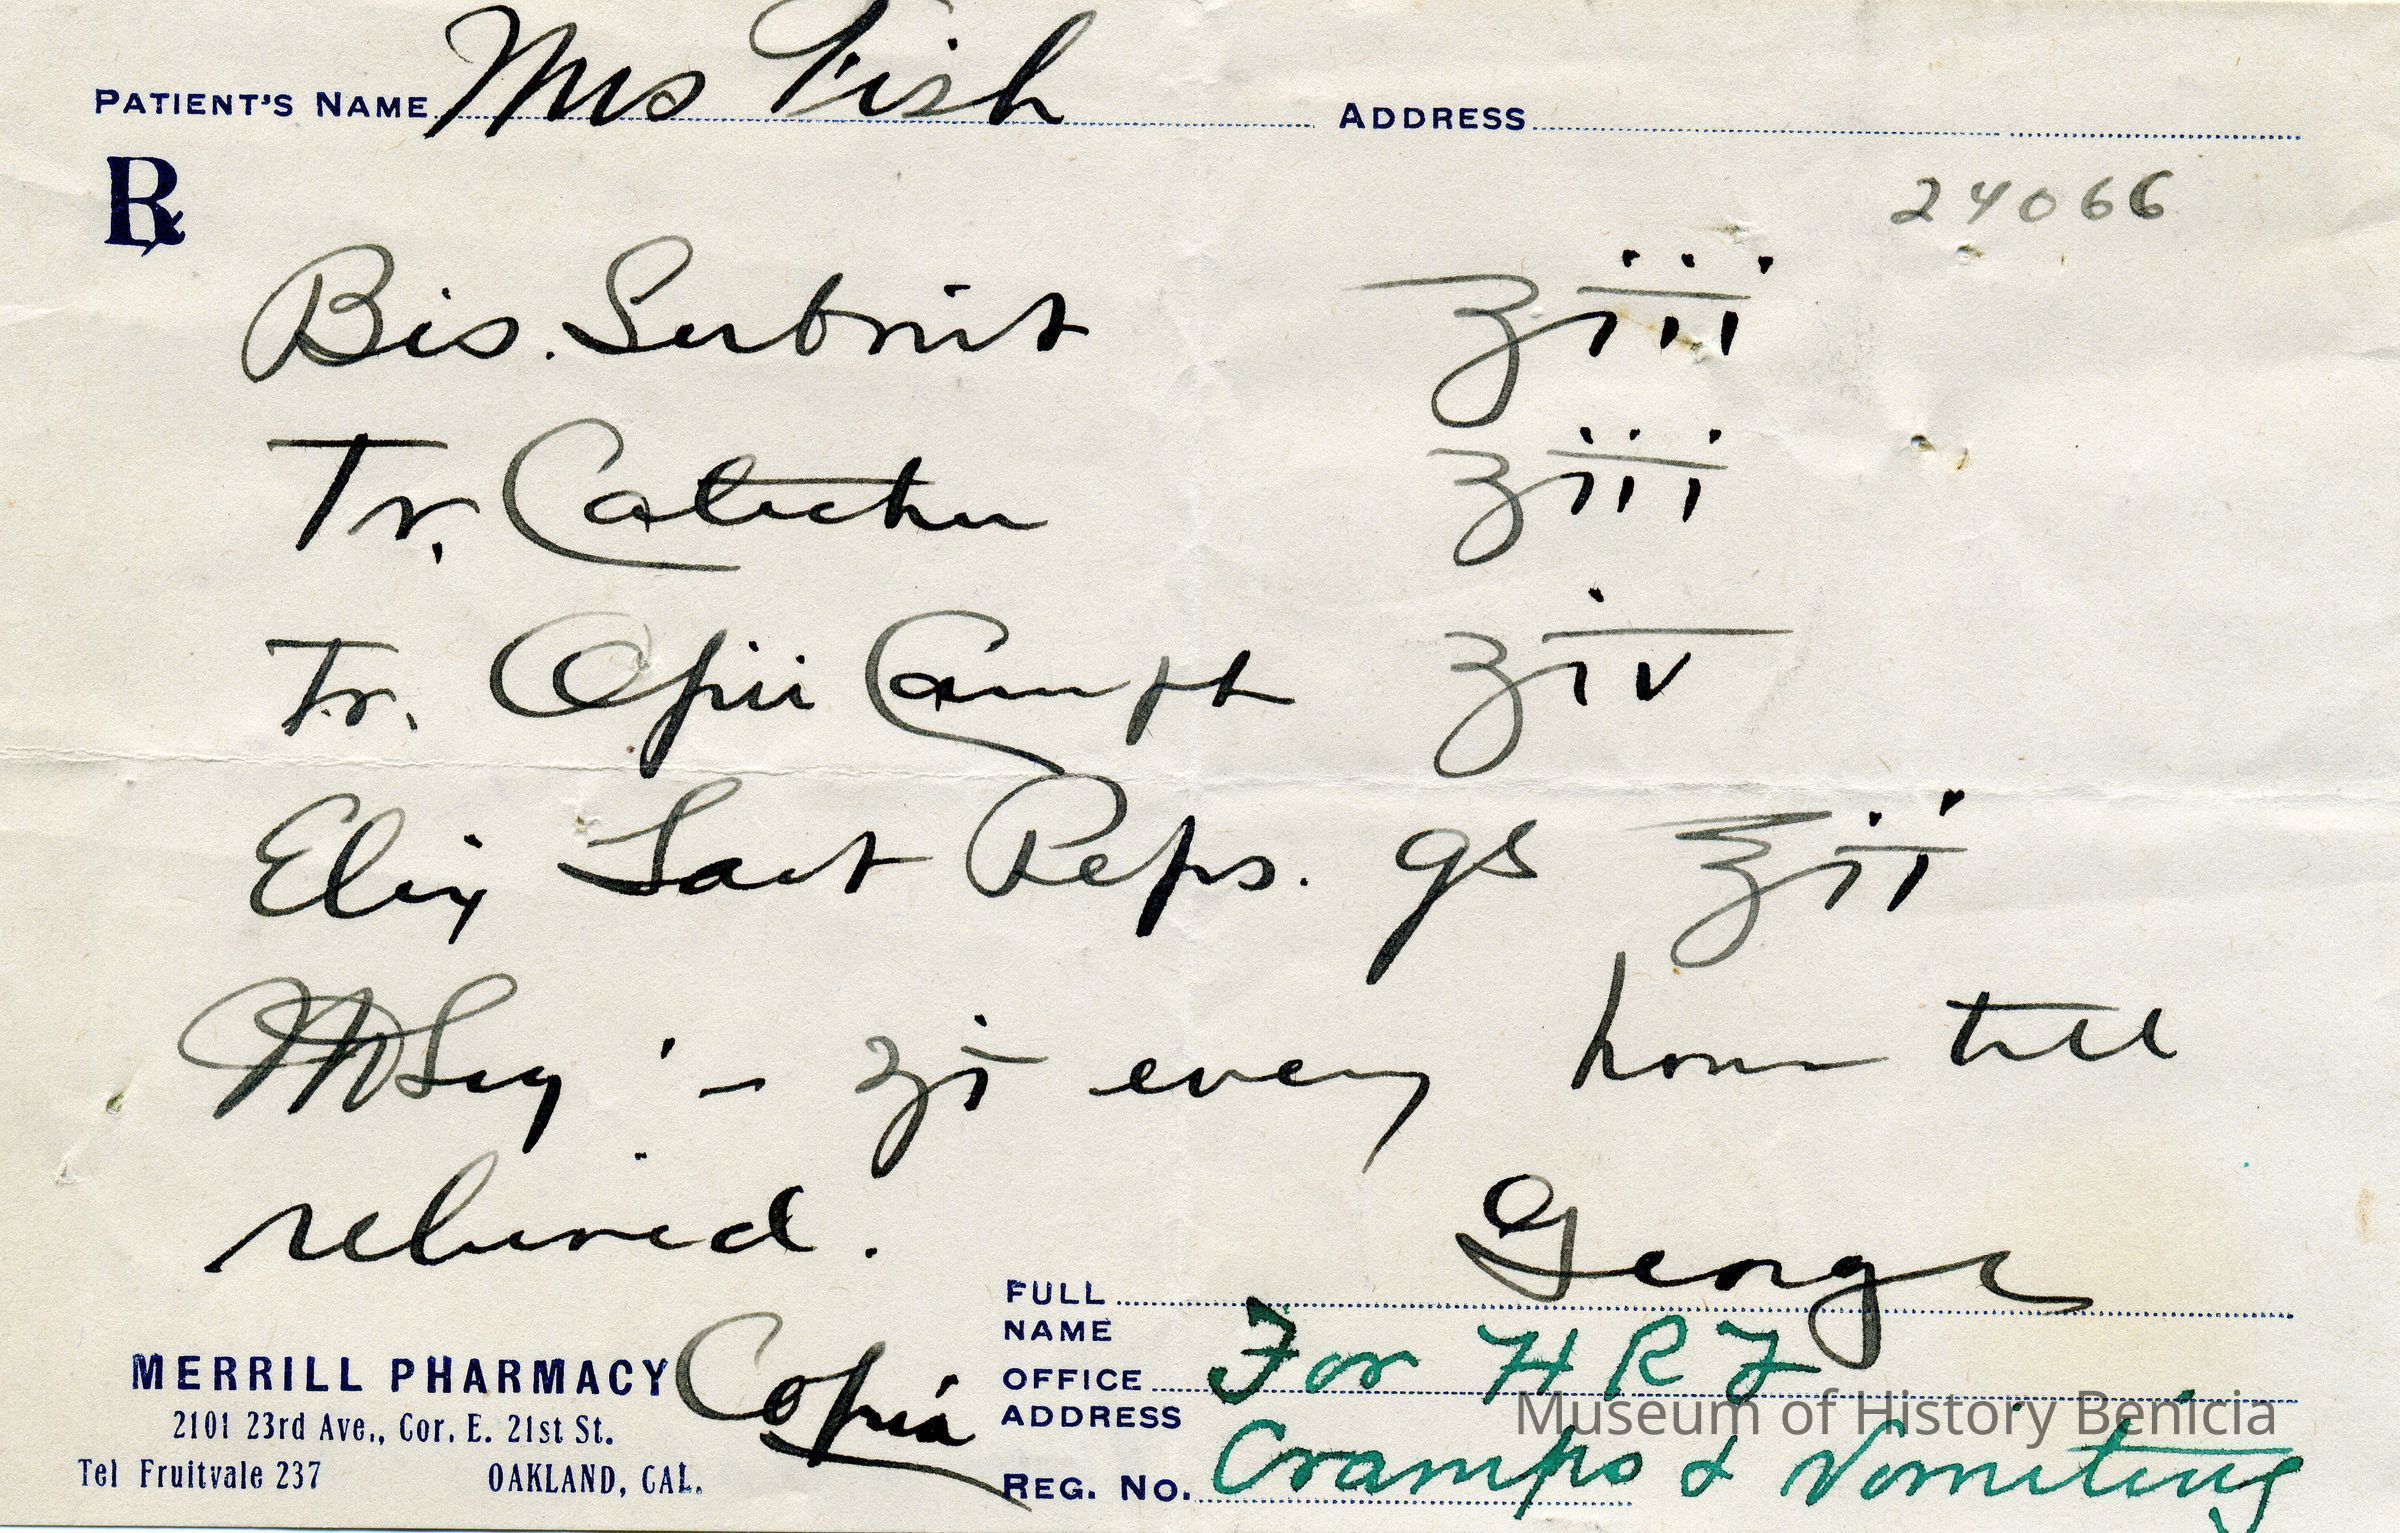 PATIENT'S NAME Mrs Fish ADDRESS
℞ 24066
Bis. Subnit ʒiii
Tr. Catechu ʒiii
Tr. Opii Camph ʒiv
Elix Lact Peps. qs ℥ii
M Sig :- ʒi every hour till
relieved.
George
FULL NAME
For H R F
OFFICE ADDRESS
Cramps & Vomiting
REG. NO.
Copia
MERRILL PHARMACY
2101 23rd Ave., Cor. E. 21st St.
Tel Fruitvale 237 OAKLAND, CAL.
Museum of History Benicia